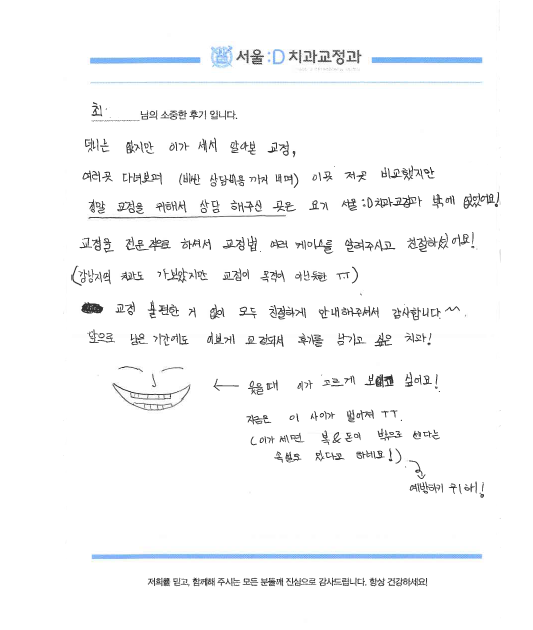 서울:D 치과교정과
최 님의 소중한 후기 입니다.
덧니는 없지만 이가 세서 알아본 교정,
여러곳 다녀보며 (비싼 상담비용 까지 내며) 이곳 저곳 비교했지만
정말 교정을 위해서 상담 해주신 곳은 요기 서울:D치과교정과 밖에 없었어요!
교정을 전문으로 하셔서 교정법, 여러 케이스를 알려주시고 친절하셨어요!
(강남지역 치과도 가보았지만 교정이 목적이 아닌듯한 ㅠㅠ)
교정 불편한 거 없이 모두 친절하게 안내해주셔서 감사합니다 ^^
앞으로 남은 기간에도 이쁘게 교정되서 후기를 남기고 싶은 치과!
← 웃을때 이가 고르게 보이고 싶어요!
지금은 이 사이가 벌어져 ㅠㅠ.
(이가 세면 복&돈이 밖으로 샌다는
속설도 있다고 하네요!)
예방하기 위해!
저희를 믿고, 함께해 주시는 모든 분들께 진심으로 감사드립니다. 항상 건강하세요!